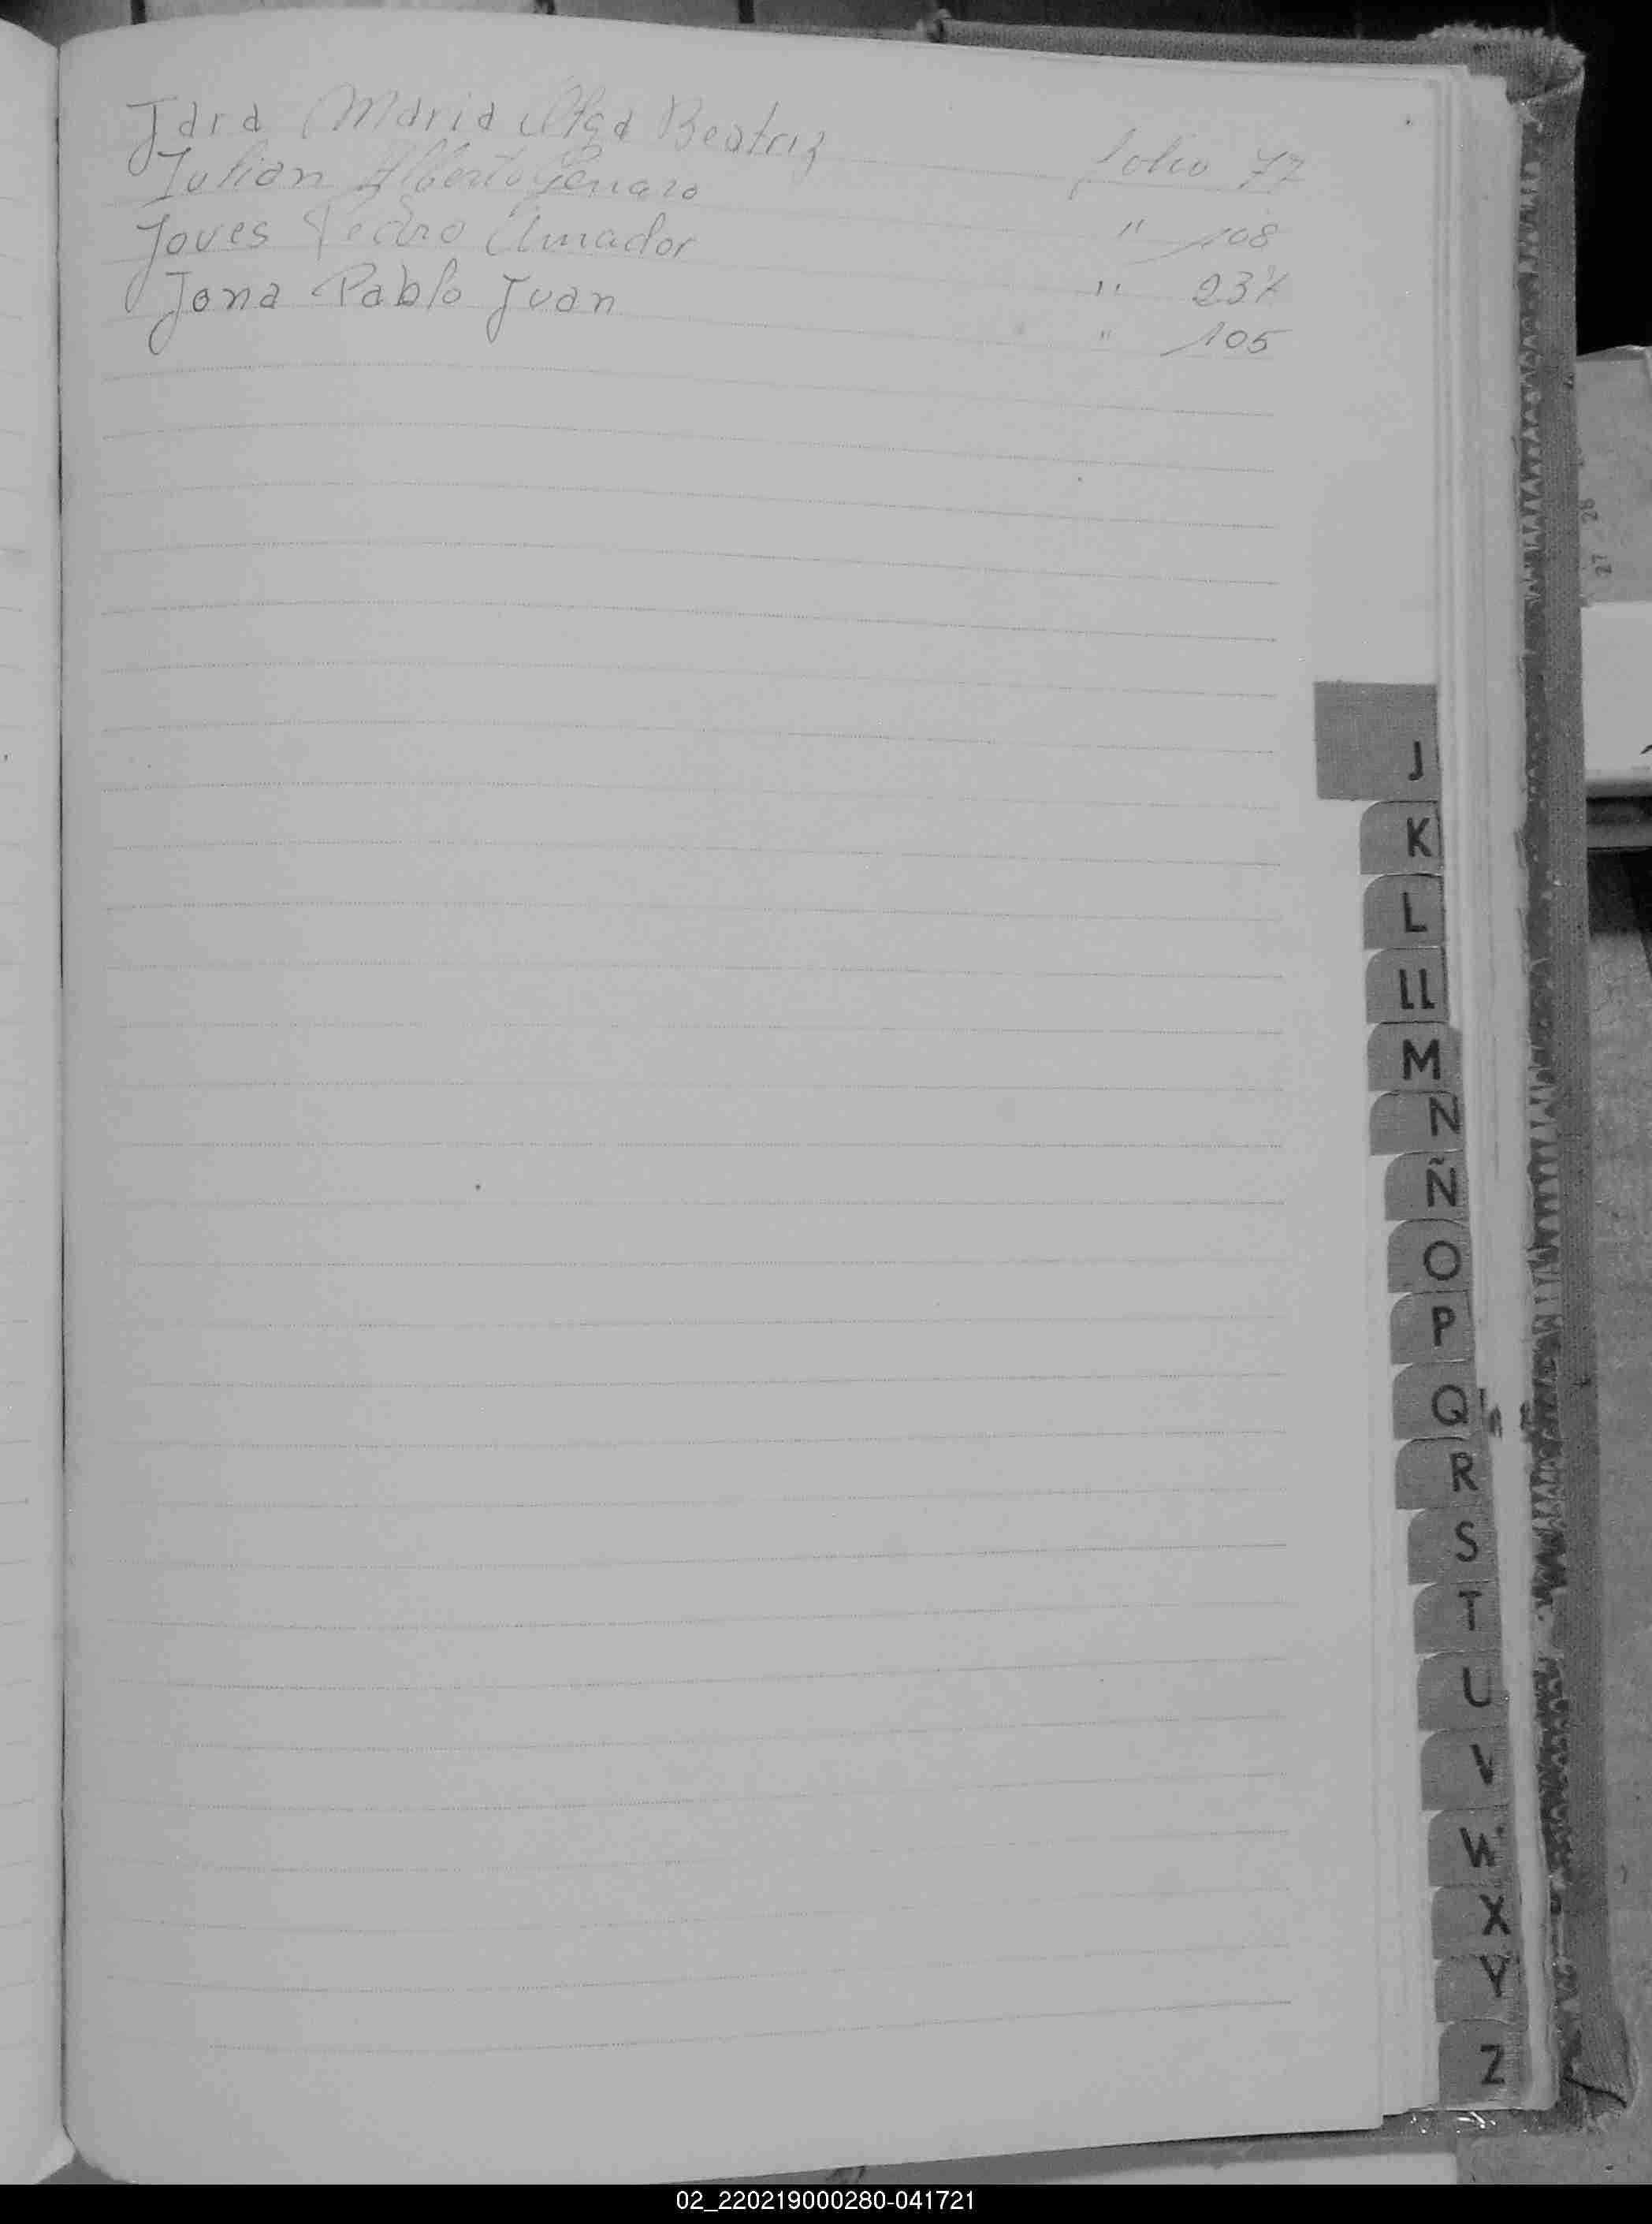 Jara Maria Olga Beatriz folio 77
Julian Alberto Genaro " 108
Joves Pedro Amador " 237
Jona Pablo Juan " 105
28
27
J
K
L
LL
M
N
Ñ
O
P
Q
R
S
T
U
V
W
X
Y
Z
02_220219000280-041721